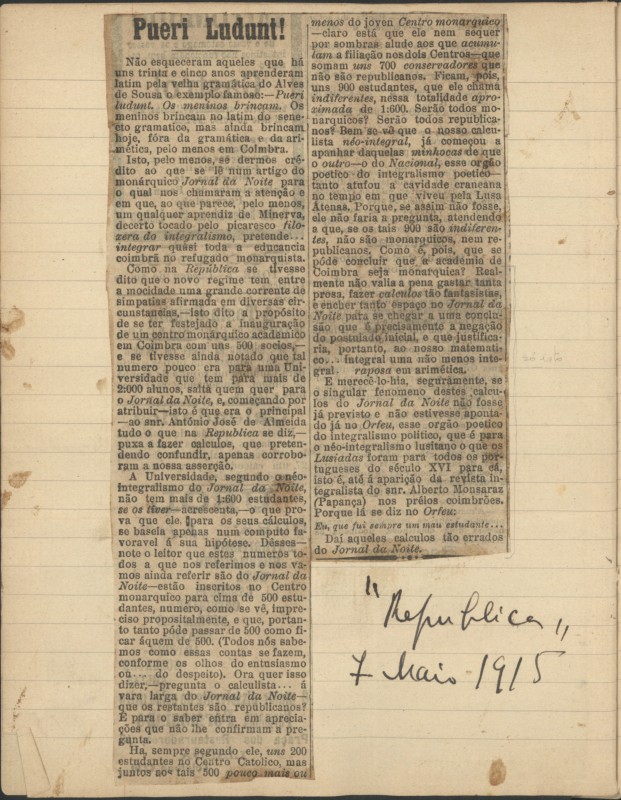 Pueri Ludunt!
Não esqueceram aqueles que há
uns trinta e cinco anos aprenderam
latim pela velha gramática do Alves
de Sousa o exemplo famoso:—Pueri
ludunt. Os meninos brincam. Os
meninos brincam no latim do sene-
cto gramatico, mas ainda brincam
hoje, fóra da gramática e da ari-
mética, pelo menos em Coimbra.
Isto, pelo menos, se dermos cré-
dito ao que se lê num artigo do
monárquico Jornal da Noite para
o qual nos chamaram a atenção e
em que, ao que parece, pelo menos,
um qualquer aprendiz de Minerva,
decerto tocado pelo picaresco filo-
xera do integralismo, pretende...
integrar quási toda a educancia
coimbrã no refugado monarquista.
Como na República se tivesse
dito que o novo regime tem entre
a mocidade uma grande corrente de
simpatias afirmada em diversas cir-
cunstancias,—isto dito a propósito
de se ter festejado a inauguração
de um centro monárquico academico
em Coimbra com uns 500 socios,—
e se tivesse ainda notado que tal
numero pouco era para uma Uni-
versidade que tem para mais de
2:000 alunos, salta quem quer para
o Jornal da Noite, e, começando por
atribuir—isto é que era o principal
—ao snr. António José de Almeida
tudo o que na Republica se diz,—
puxa a fazer calculos, que preten-
dendo confundir, apenas corrobo-
ram a nossa asserção.
A Universidade, segundo o néo-
integralismo do Jornal da Noite,
não tem mais de 1:600 estudantes,
se os tiver—acrescenta,—o que pro-
va que ele para os seus cálculos,
se baseia apenas num computo fa-
voravel á sua hipótese. Désses—
note o leitor que estes numeros to-
dos a que nos referimos e nos va-
mos ainda referir são do Jornal da
Noite—estão inscritos no Centro
monarquico para cima de 500 estu-
dantes, numero, como se vê, impre-
ciso propositalmente, e que, portan-
to tanto póde passar de 500 como fi-
car áquem de 500. (Todos nós sabe-
mos como essas contas se fazem,
conforme os olhos do entusiasmo
ou... do despeito). Ora quer isso
dizer,—pregunta o calculista... á
vara larga do Jornal da Noite—
que os restantes são republicanos?
E para o saber entra em aprecia-
ções que não lhe confirmam a pre-
gunta.
Ha, sempre segundo ele, uns 200
estudantes no Centro Catolico, mas
juntos aos tais 500 pouco mais ou
menos do joven Centro monarquico
—claro está que ele nem sequer
por sombras alude aos que acumu-
lam a filiação nos dois Centros—que
somam uns 700 conservadores que
não são republicanos. Ficam, pois,
uns 900 estudantes, que ele chama
indiferentes, nessa totalidade apro-
zimada de 1:600. Serão todos mo-
narquicos? Serão todos republica-
nos? Bem se vê que o nosso calcu-
lista néo-integral, já começou a
apanhar daquelas minhocas de que
o outro—o do Nacional, esse orgão
poetico do integralismo poetico—
tanto atufou a cavidade craneana
no tempo em que viveu pela Lusa
Atenas. Porque, se assim não fosse,
ele não faria a pregunta, atendendo
a que, se os tais 900 são indiferen-
tes, não são monarquicos, nem re-
publicanos. Como é, pois, que se
póde concluir que a academia de
Coimbra seja monarquica? Real-
mente não valia a pena gastar tanta
prosa, fazer calculos tão fantasistas,
e encher tanto espaço no Jornal da
Noite para se chegar a uma conclu-
são que é precisamente a negação
do postulado inicial, e que justifica-
ria, portanto, ao nosso matemati-
co... integral uma não menos inte-
gral raposa em arimética.
E merecê-lo-hia, seguramente, se
o singular fenomeno destes calcu-
los do Jornal da Noite não fosse
já previsto e não estivesse aponta-
do já no Orfeu, esse orgão poetico
do integralismo politico, que é para
o néo-integralismo lusitano o que os
Lusiadas foram para todos os por-
tugueses do século XVI para cá,
isto é, até á aparição da revista in-
tegralista do snr. Alberto Monsaraz
(Papança) nos prélos coimbrões.
Porque lá se diz no Orfeu:
Eu, que fui sempre um mau estudante...
Daí aqueles calculos tão errados
do Jornal da Noite.
"Republica"
7 Maio 1915